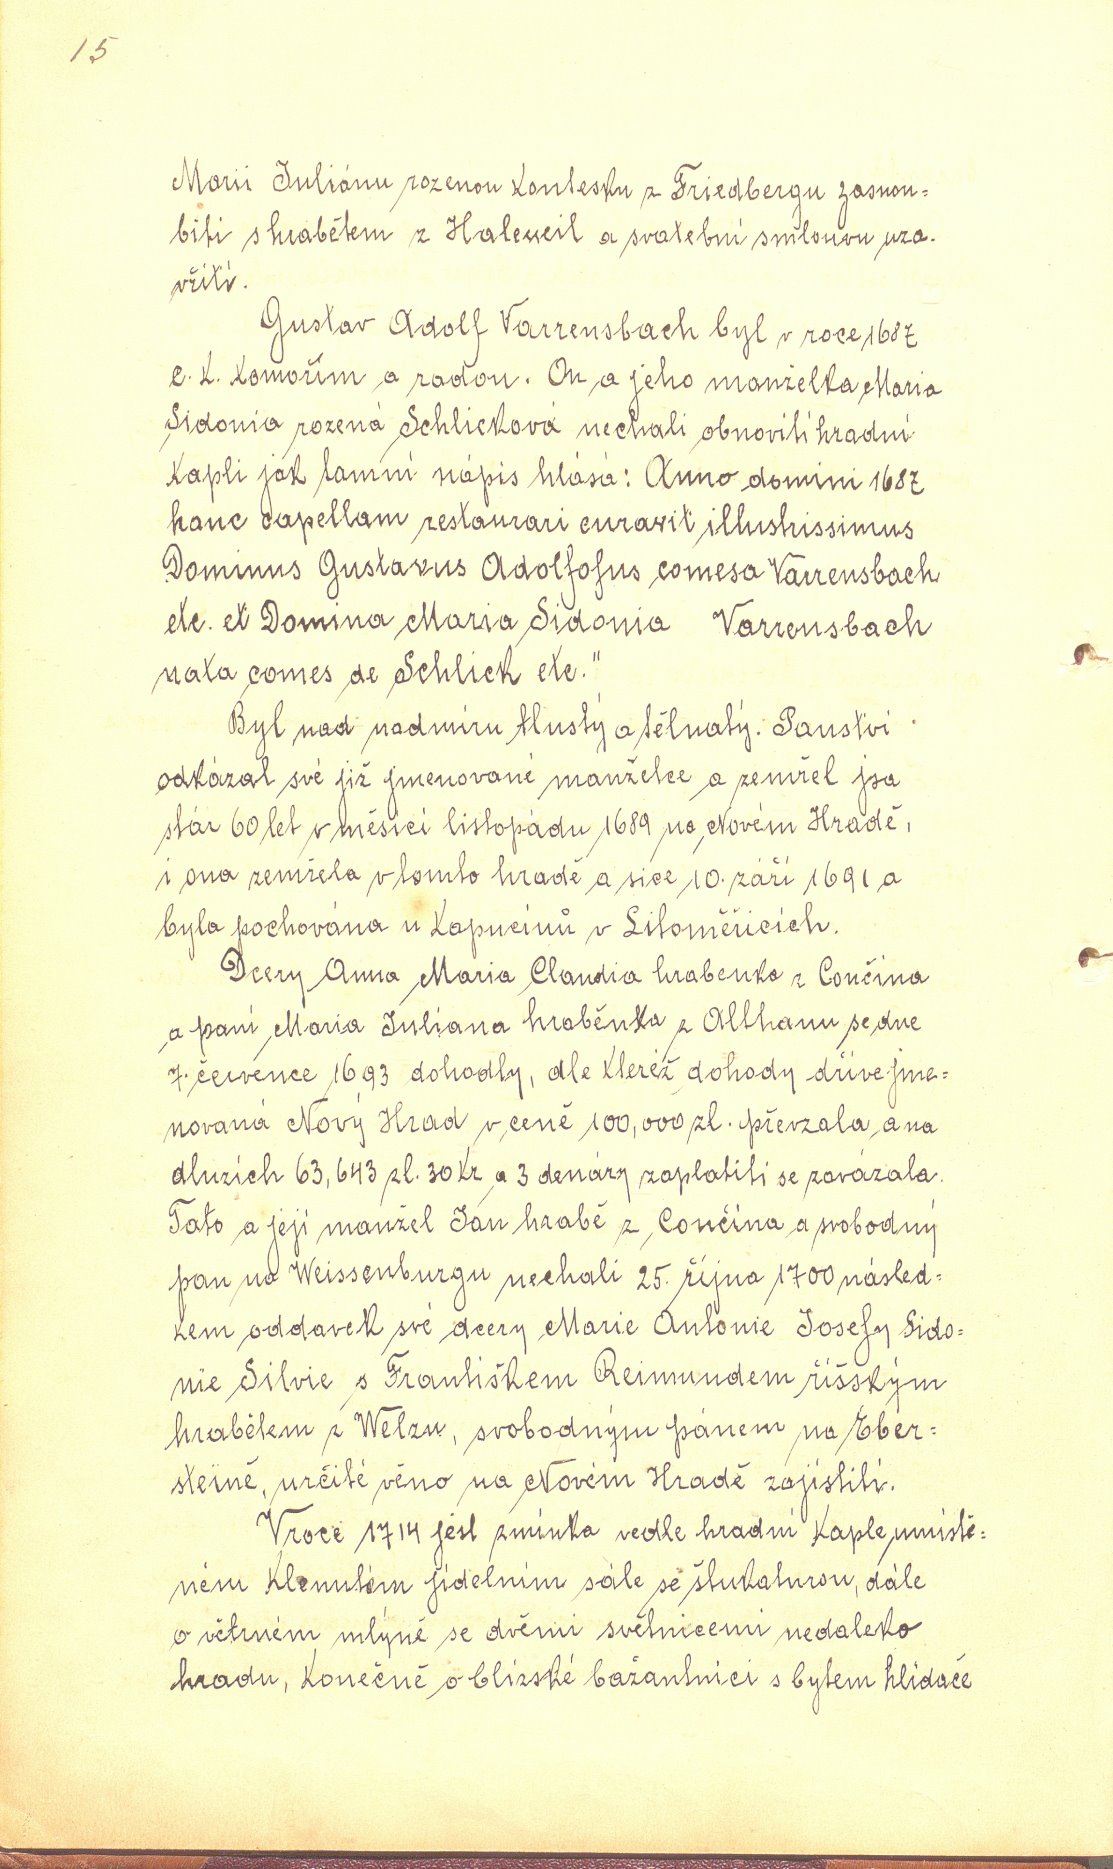 15
Marii Juliánu rozenou kontesku z Friedbergu zasnou=
biti s hrabětem z Haleweil a svatební smlouvu uza-
vříti.
Gustav Adolf Varrensbach byl v roce 1687
c. k. komořím a radou. On a jeho manželka Maria
Sidonia rozená Schlicková nechali obnoviti hradní
kapli jak tamní nápis hlásá: Anno domini 1687
hanc capellam restaurari curavit illustrissimus
Dominus Gustavus Adolfofus comesa Varrensbach
etc. et Domina Maria Sidonia Varrensbach
nata comes de Schlick etc."
Byl nad nadmíru tlustý a tělnatý. Panství
odkázal své již jmenované manželce a zemřel jsa
stár 60 let v měsíci listopádu 1689 na Novém Hradě,
i ona zemřela v tomto hradě a sice 10. září 1691 a
byla pochována u Kapucínů v Litoměřicích.
Dcery Anna Maria Claudia hrabenka z Cončina
a paní Maria Juliana hraběnka z Althanu se dne
7. července 1693 dohodly, dle kteréž dohody dříve jme=
novaná Nový Hrad v ceně 100,000 zl. převzala a na
dluzích 63,643 zl. 30 kr a 3 denáry zaplatiti se zavázala.
Tato a její manžel Jan hrabě z Cončina a svobodný
pan na Weissenburgu nechali 25. října 1700 násled=
kem oddavek své dcery Marie Antonie Josefy Sido=
nie Silvie s Františkem Reimundem říšským
hrabětem z Welzu, svobodným pánem na Eber=
steině, určité věno na Novém Hradě zajistiti.
V roce 1714 jest zmínka vedle hradní kaple umistě=
ném klenutém jídelním sále se štukaturou, dále
o větrném mlýně se dvěmi světnicemi nedaleko
hradu, konečně o blízské bažantnici s bytem hlídače